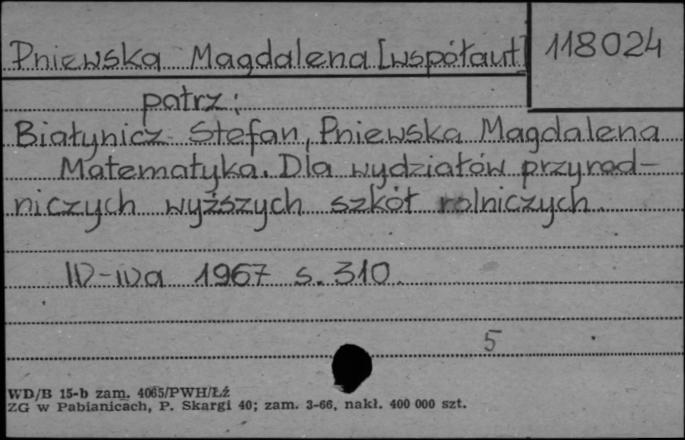 Pniewska Magdalena [współaut]
118024
patrz:
Białynicz Stefan, Pniewska Magdalena
Matematyka. Dla wydziałów przyrod-
niczych wyższych szkół rolniczych.
W-wa 1967 s. 310.
5
WD/B 15-b zam. 4065/PWH/Łź
ZG w Pabianicach, P. Skargi 40; zam. 3-66, nakł. 400 000 szt.